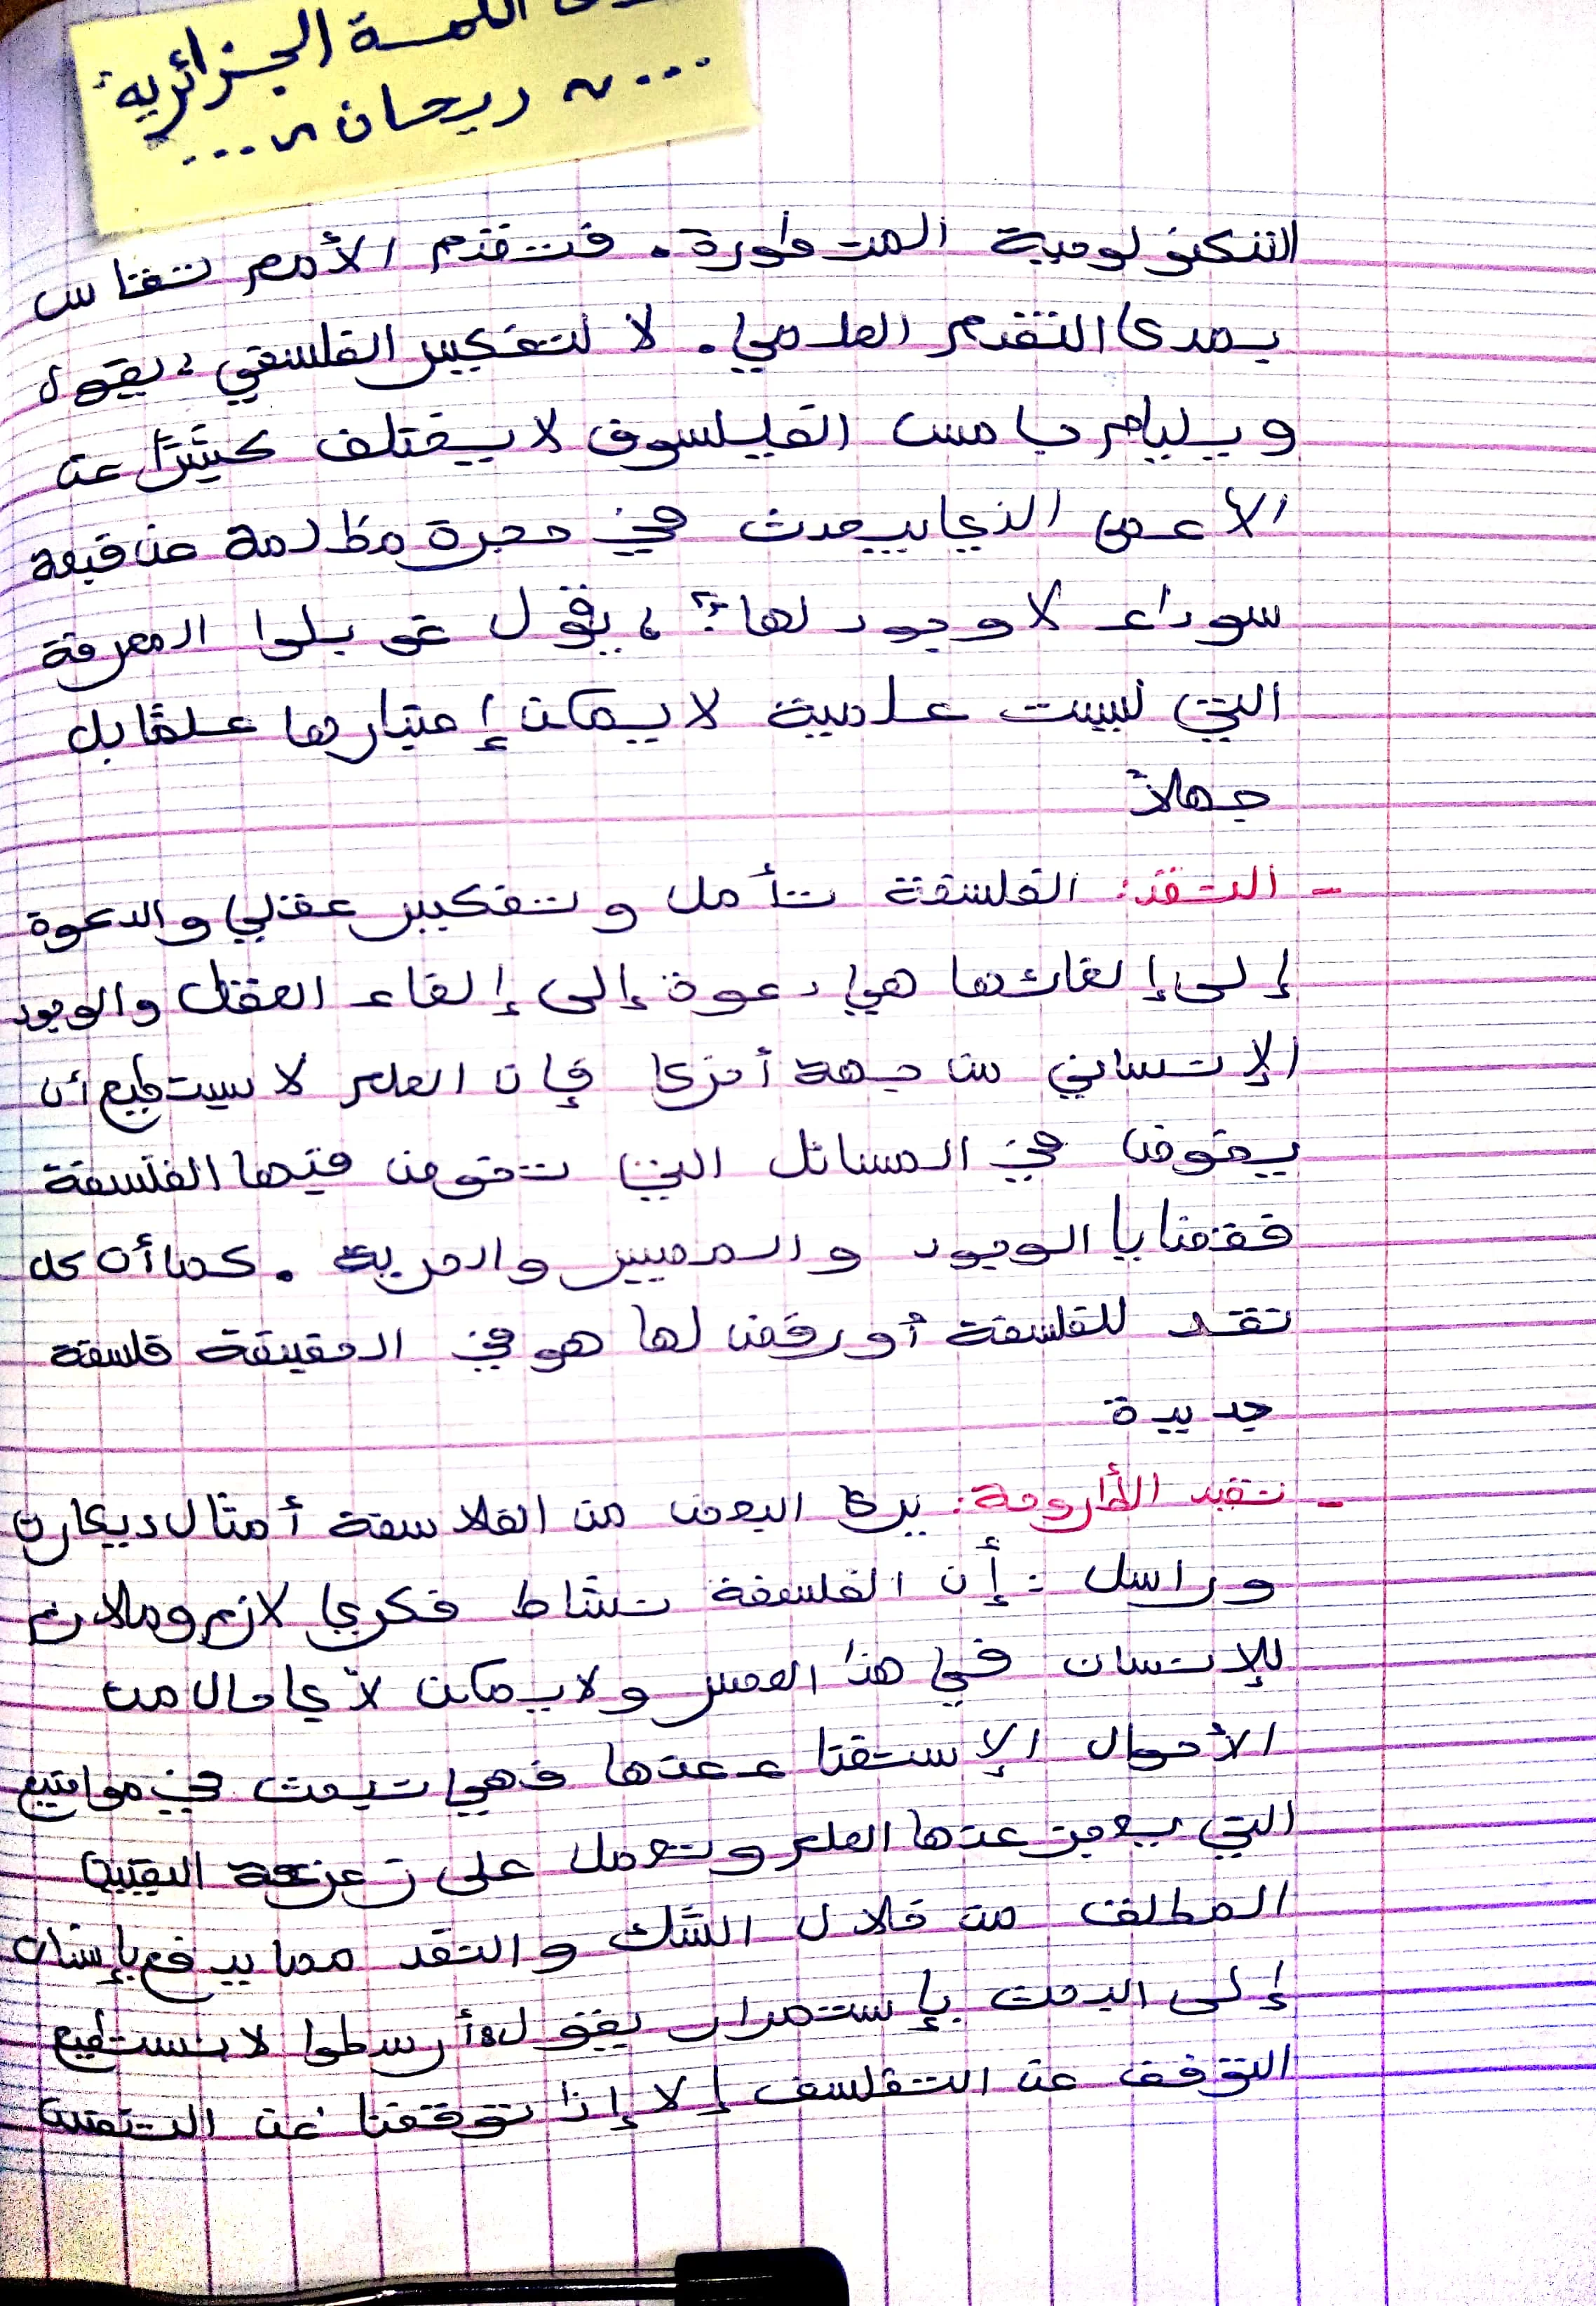 اللمسة الجزائرية
... ~ ريحان ~ ...
التكنولوجية المتطورة. فتقدم الأمم تقاس
بمدى التقدم العلمي. لا لتفكير الفلسفي، يقول
ويليام جامس الفيلسوف لا يختلف كثيرًا عن
الأعمى الذي يبحث في حجرة مظلمة عن قبعة
سوداء لا وجود لها؟، يقول غوبلوا المعرفة
التي ليست علمية لا يمكن إعتبارها علمًا بل
جهلاً
- النقد: الفلسفة تأمل وتفكير عقلي والدعوة
إلى إلغائها هي دعوة إلى إلغاء العقل والوجود
الإنساني من جهة أخرى فإن العلم لا يستطيع أن
يخوض في المسائل التي تخوض فيها الفلسفة
فقضايا الوجود والمصير والحرية. كما أن كل
نقد للفلسفة أو رفض لها هو في الحقيقة فلسفة
جديدة
- نقيد الأطروحة: يرى البعض من الفلاسفة أمثال ديكارت
وراسل: أن الفلسفة نشاط فكري لازم وملازم
للإنسان في هذا العصر ولا يمكن لأي حال من
الأحوال الإستغناء عنها فهي تبحث في مواضيع
التي يعجز عنها العلم وتعمل على زعزعة اليقين
المطلق من خلال الشك والنقد مما يدفع بإنسان
إلى البحث بإستمرار يقول أرسطوا لا نستطيع
التوقف عن التفلسف إلا إذا توقفنا عن التنفس